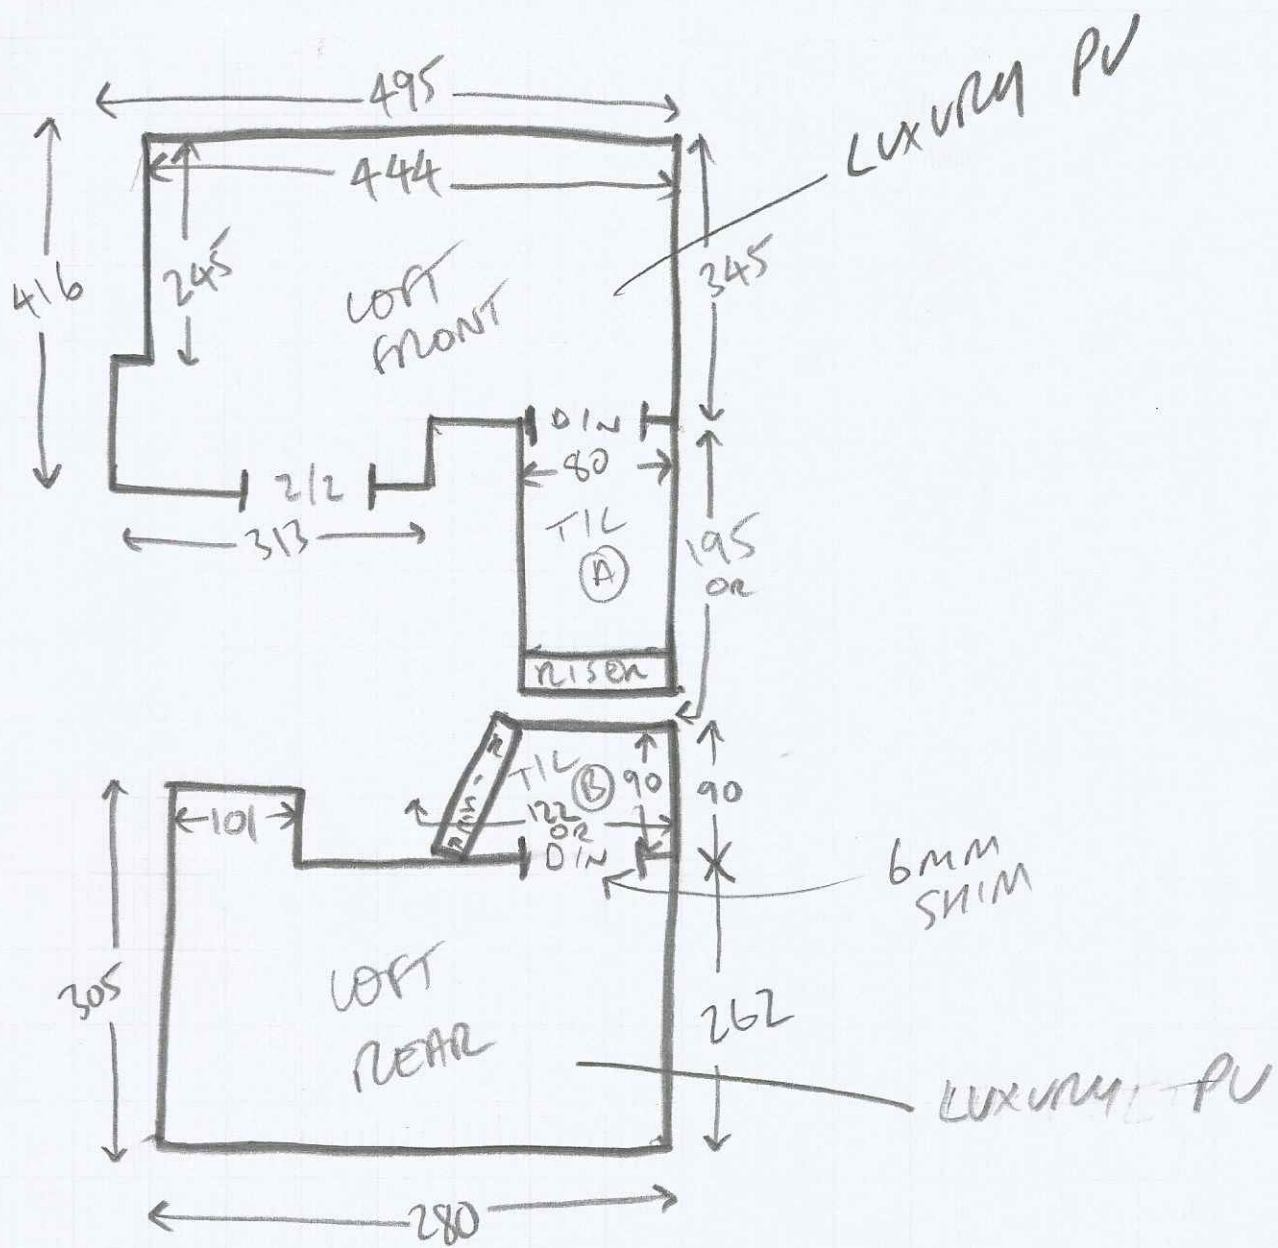 495
LUXURY PU
444
416
245
345
LOFT
FRONT
DIN
80
2/2
313
TIL
A
195
OR
RISER
TIL
B
90
90
122
OR
101
DIN
6MM
SHIM
305
LOFT
REAR
262
LUXURY PU
280